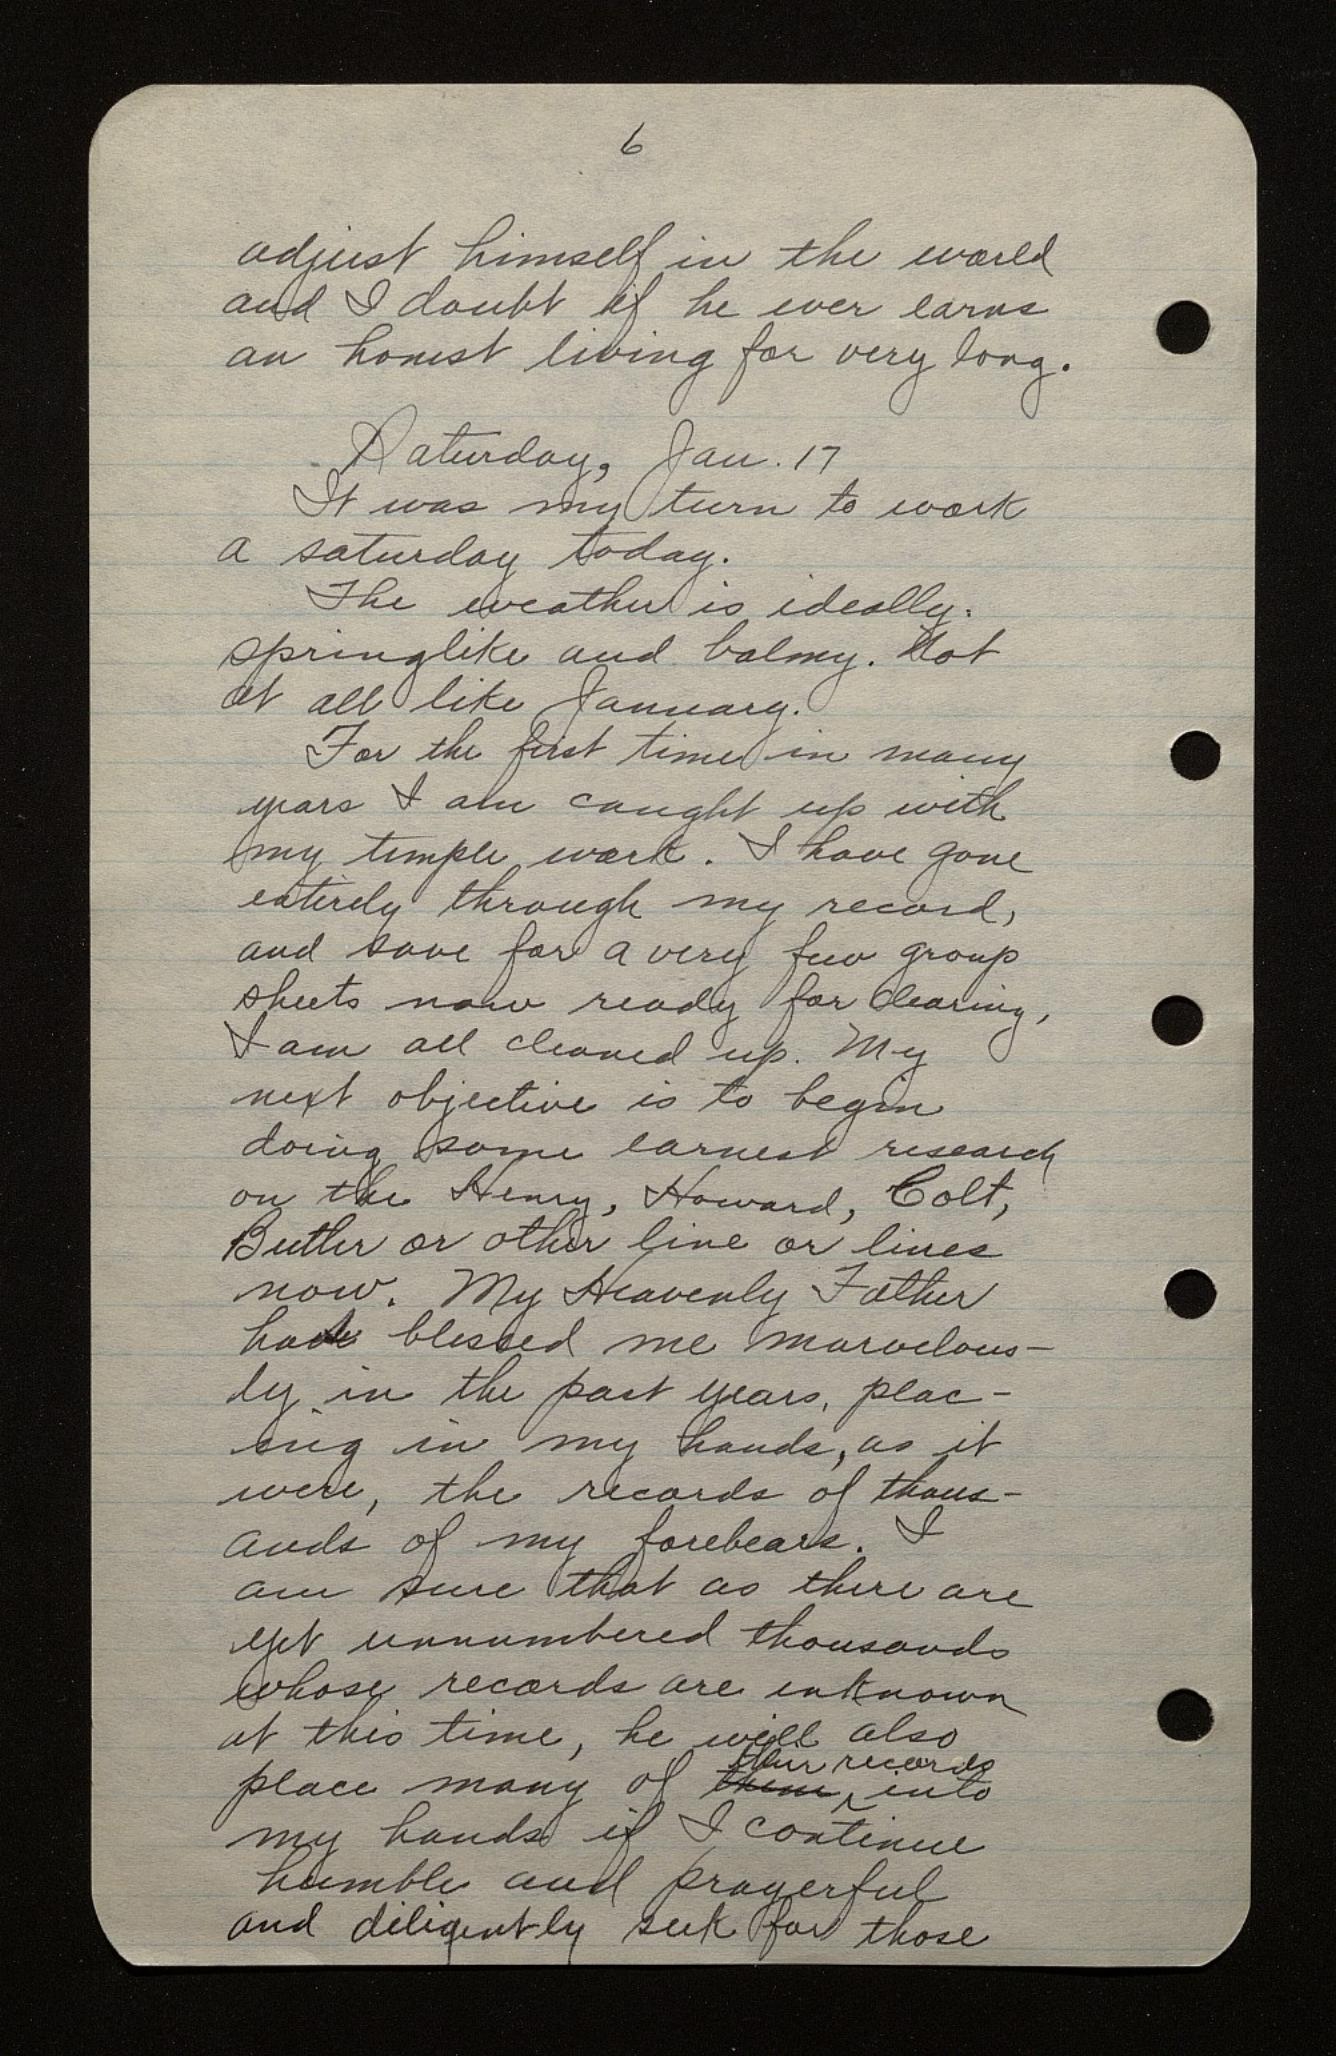 6
adjust himself in the world
and I doubt if he ever earns
an honest living for very long.
Saturday, Jan. 17
It was my turn to work
a saturday today.
The weather is ideally
springlike and balmy. Not
at all like January.
For the first time in many
years I am caught up with
my temple work. I have gone
entirely through my record,
and save for a very few group
sheets now ready for clearing,
I am all cleaned up. My
next objective is to begin
doing some earnest research
on the Henry, Howard, Colt,
Butler or other line or lines
now. My Heavenly Father
has blessed me marvelous-
ly in the past years, plac-
ing in my hands, as it
were, the records of thous-
ands of my forebears. I
am sure that as there are
yet unnumbered thousands
whose records are unknown
at this time, he will also
their records
place many of them ^ into
my hands if I continue
humble and prayerful
and diligently seek for those